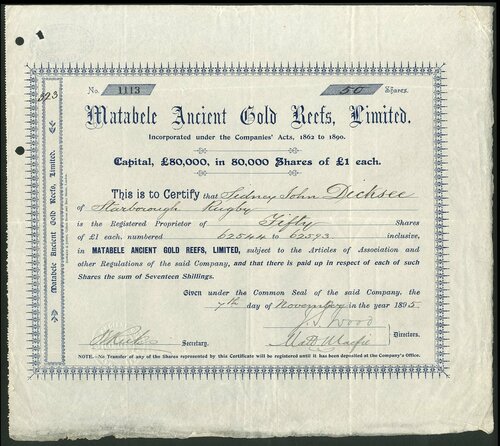 No. 1113 50 Shares.
Matabele Ancient Gold Reefs, Limited.
Incorporated under the Companies' Acts, 1862 to 1890.
Capital, £80,000, in 80,000 Shares of £1 each.
This is to Certify that Sidney John Dicksee
of Starborough Rugby
is the Registered Proprietor of Fifty Shares
of £1 each, numbered 62544 to 62593 inclusive,
in MATABELE ANCIENT GOLD REEFS, LIMITED, subject to the Articles of Association and
other Regulations of the said Company, and that there is paid up in respect of each of such
Shares the sum of Seventeen Shillings.
Given under the Common Seal of the said Company, the
7th day of November in the year 1895.
J. S. Wood
Secretary.
Directors.
NOTE.—No Transfer of any of the Shares represented by this Certificate will be registered until it has been deposited at the Company's Office.
Matabele Ancient Gold Reefs, Limited.